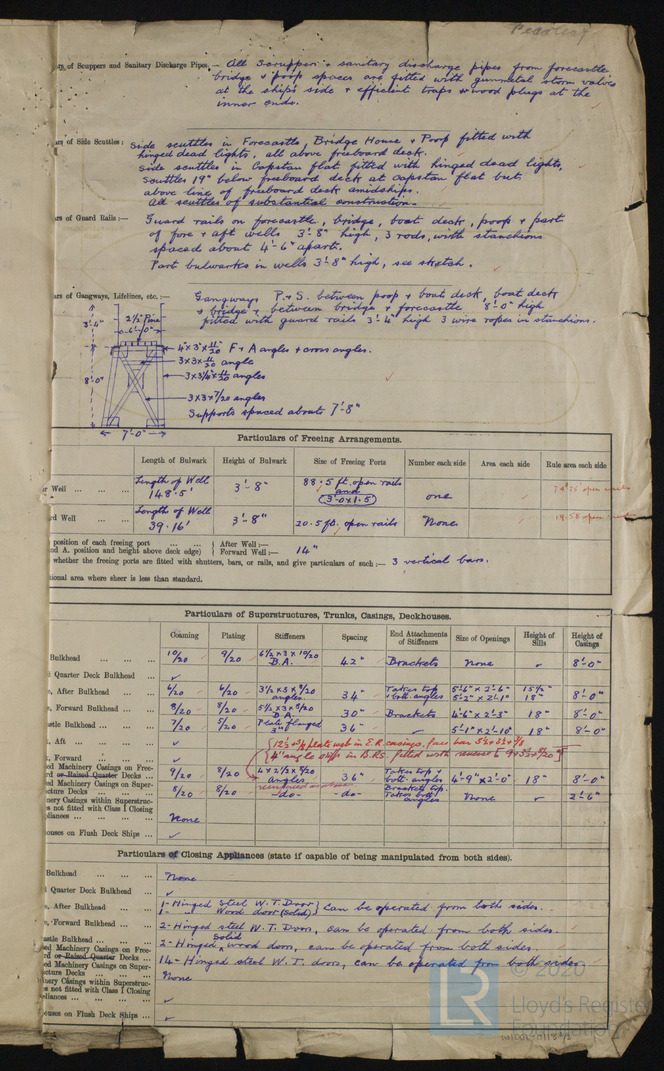 of Scuppers and Sanitary Discharge Pipes,— All Scuppers + sanitary discharge pipes from forecastle
bridge + poop spaces are fitted with gunmetal storm valves
at the ship's side + efficient traps + wood plugs at the
inner ends.
of Side Scuttles:— Side scuttles in Forecastle, Bridge House + Poop fitted with
hinged dead lights, all above freeboard deck.
Side scuttles in Capstan flat fitted with hinged dead lights,
Scuttles 19" below freeboard deck at capstan flat but
above line of freeboard deck amidships.
All scuttles of substantial construction.
of Guard Rails:— Guard rails on forecastle, bridge, boat deck, poop + part
of fore + aft wells 3'-8" high, 3 rods, with stanchions
spaced about 4'-6" apart.
Part bulwarks in wells 3'-8" high, see sketch.
of Gangways, Lifelines, etc.:— Gangways P.+S. between poop + boat deck, boat deck
+ bridge + between bridge + forecastle 8'-0" high
fitted with guard rails 3'-4" high 3 wire ropes in stanchions.
3'-4"
2½" Pine
6'-0"
8'-0"
7'-0"
4"x3"x 11/20 F+A angles + cross angles.
3x3x 11/20 angle
3x3¼x 11/20 angles
3x3x7/20 angles
Supports spaced about 7'-8"
Particulars of Freeing Arrangements.
Length of Bulwark Height of Bulwark Size of Freeing Ports Number each side Area each side Rule area each side
Well Length of Well 148.5' 3'-8" 88.5 ft. open rails and 3'0x1.5 one
Well Length of Well 39.16' 3'-8" 20.5 ft. open rails None
position of each freeing port After Well:—
A. position and height above deck edge) Forward Well:— 14"
whether the freeing ports are fitted with shutters, bars, or rails, and give particulars of such:— 3 vertical bars.
area where sheer is less than standard.
Particulars of Superstructures, Trunks, Casings, Deckhouses.
Coaming Plating Stiffeners Spacing End Attachments of Stiffeners Size of Openings Height of Sills Height of Casings
Bulkhead 10/20 9/20 6½x3x10/20 B.A. 42" Brackets None 8'-0"
Quarter Deck Bulkhead
After Bulkhead 6/20 6/20 3½x3x8/20 angles 34" Takes top + bott. angles 5'-6"x2'-6" 5'-2"x2'-1" 15½" 18" 8'-0"
Forward Bulkhead 8/20 8/20 B.A. 30" Brackets 4'-6"x2'-3" 18" 8'-0"
Bulkhead 7/20 5/20 Plate flanged 3" 36" 5'-1"x2'-10" 18" 8'-0"
Aft
Forward
Machinery Casings on Free-
or Raised Quarter Decks 9/20 8/20 4x2½x8/20 angles 36" Takes top + bott. angles 4'-9"x2'-0" 18" 8'-0"
Machinery Casings on Super-
Decks 8/20 8/20 -do- -do- Brackets top. Takes bott. angles None 2'-6"
Casings within Superstruc-
not fitted with Class I Closing
None
on Flush Deck Ships
Particulars of Closing Appliances (state if capable of being manipulated from both sides).
Bulkhead None
Quarter Deck Bulkhead
After Bulkhead 1-Hinged Steel W.T. Door
1- " Wood door (solid) } Can be operated from both sides.
Forward Bulkhead 2-Hinged steel W.T. Door, can be operated from both sides.
Bulkhead 2-Hinged solid wood doors, can be operated from both sides.
Machinery Casings on Free-
or Raised Quarter Decks 14-Hinged steel W.T. doors, can be operated from both sides
Machinery Casings on Super-
Decks None
Casings within Superstruc-
not fitted with Class I Closing
on Flush Deck Ships
© 2020
LR
Lloyd's Register
Foundation